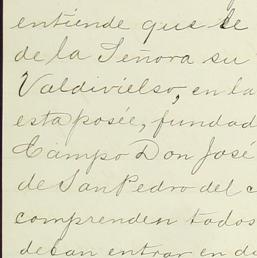 entiende que se
de la Señora su
Valdivielso, en la
esta posée, fundad
Campo Don José
de San Pedro del c
comprenden todos
deban entrar en d